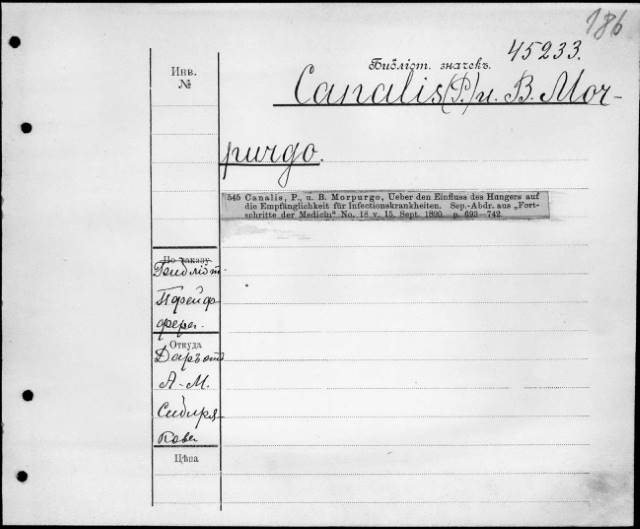 186
Инв.
№
Библіот. значекъ. 45233.
Canalis (P.) u. B. Mor-
purgo.
545 Canalis, P., u. B. Morpurgo, Ueber den Einfluss des Hungers auf
die Empfänglichkeit für Infectionskrankheiten. Sep.-Abdr. aus „Fort-
schritte der Medicin“ No. 18 v. 15. Sept. 1890. p. 693—742.
По заказу
Библіот.
Пфейф
фера.
Откуда
Даръ отъ
А-М.
Сибиря-
кова
Цѣна